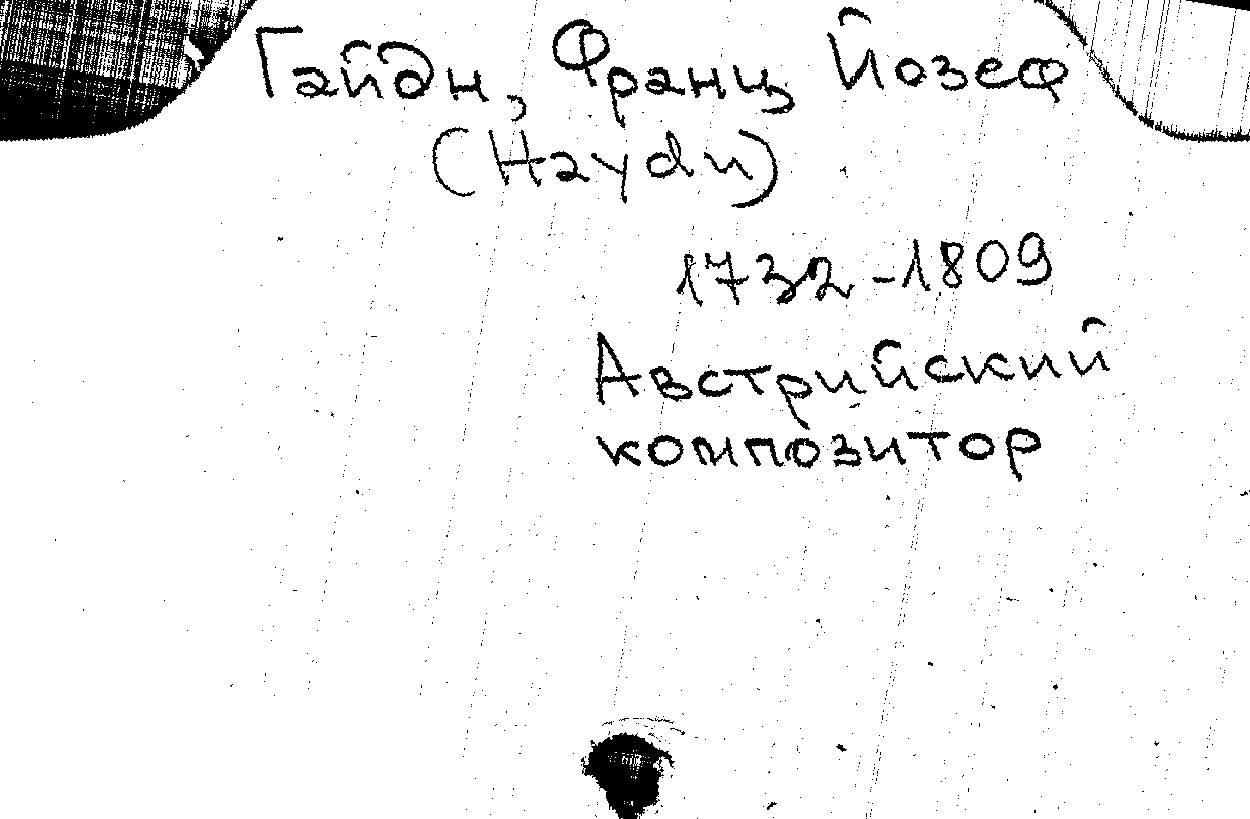 Гайдн, Франц Йозеф
(Haydn)
1732-1809
Австрийский
композитор